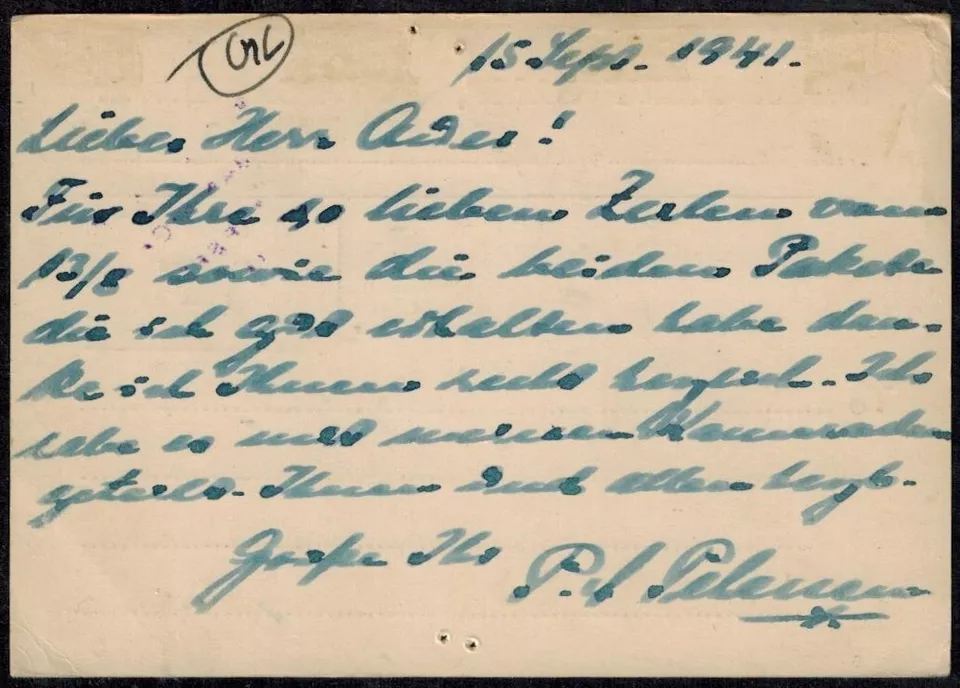 15 Sept. 1941.
Lieber Herr Ader!
Für Ihre so lieben Zeilen vom
13/8 sowie die beiden Pakete
die ich gut erhalten habe dan-
ke ich Ihnen recht herzlich. Ich
habe es mit meinen Kameraden
geteilt. Ihnen und allen herzl.
Grüße Ihr